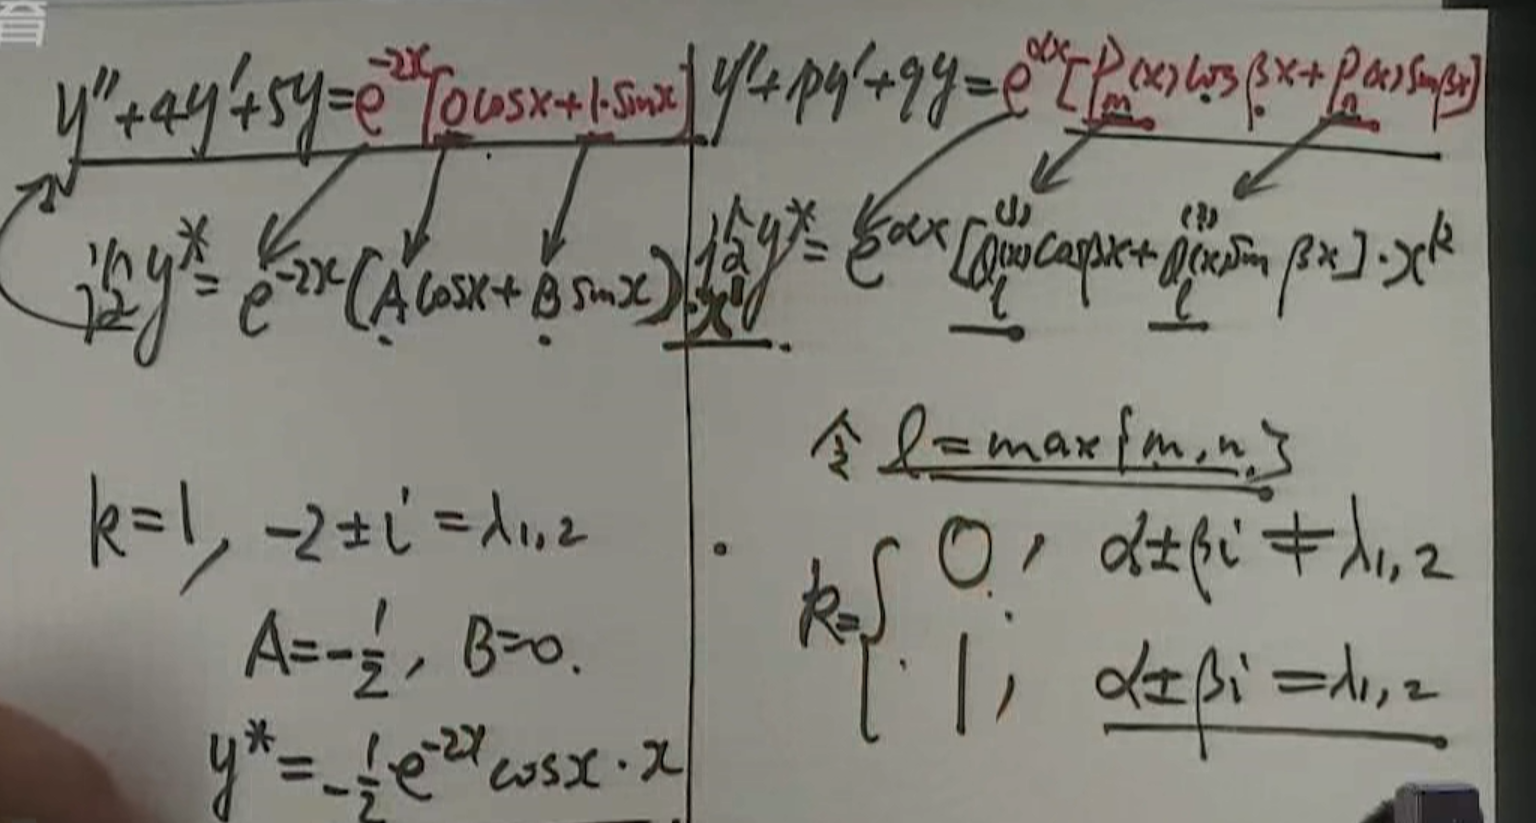 育
y''+4y'+5y=e^{-2x}[0cosx+1·sinx]
设y*=e^{-2x}(Acosx+Bsinx)·x^1
k=1, -2±i=λ_{1,2}
A=-1/2, B=0.
y*=-1/2e^{-2x}cosx·x
y''+py'+qy=e^{αx}[P_m(x)cosβx+P_n(x)sinβx]
设y*=e^{αx}[Q_l^{(1)}(x)cosβx+Q_l^{(2)}(x)sinβx]·x^k
令 l=max{m,n}
k={0, α±βi≠λ_{1,2}
1, α±βi=λ_{1,2}